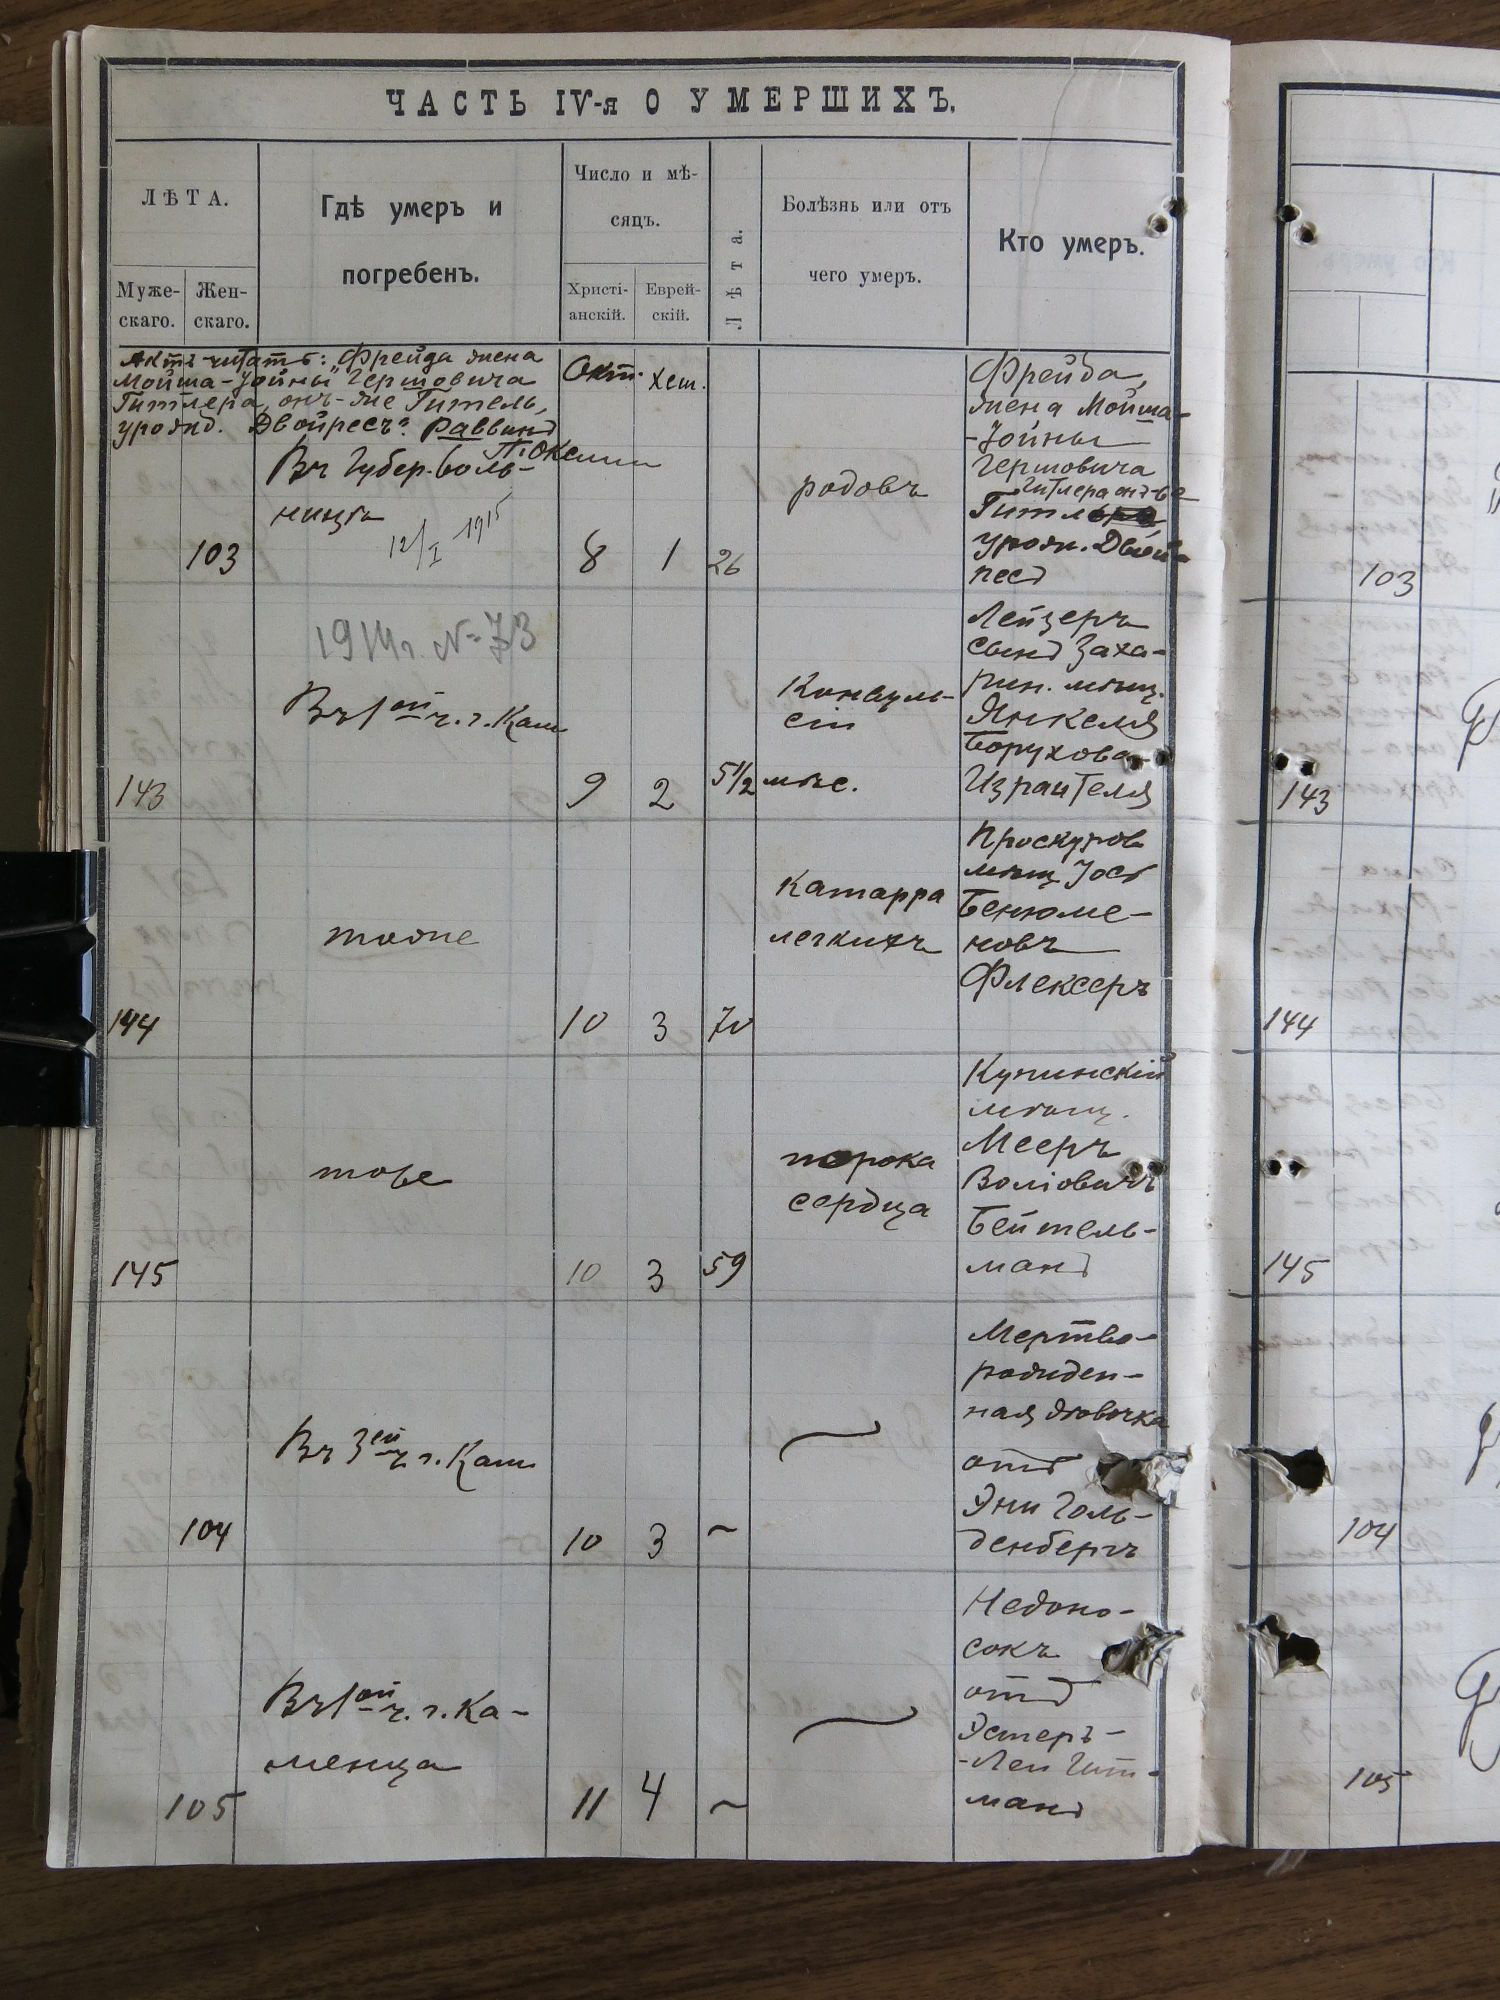 ЧАСТЬ IV-я О УМЕРШИХЪ.
ЛѢТА.
Муже-
скаго.
Жен-
скаго.
Гдѣ умеръ и
погребенъ.
Число и мѣ-
сяцъ.
Христі-
анскій.
Еврей-
скій.
Лѣта.
Болѣзнь или отъ
чего умеръ.
Кто умеръ.
Актъ читать: „Фрейда жена
Мойша-Іойны Гершовича
Гитлера, онъ-же Гитель,
урожд. Двойресъ". Раввинъ
Окт.
Хеш.
103
Въ Губер. боль-
ницѣ
12/I 1915
8
1
26
родовъ
Фрейда,
жена Мойша-
-Іойны
Гершовича
Гитлера онъ-же
урожд. Двой-
ресъ
1914г. №73
143
Въ 1ой ч. г. Кам
9
2
5 1/2 мѣс.
Конвуль-
сіи
Лейзеръ
сынъ Заха-
рин. мѣщ.
Янкеля
Борухова
Израителя
144
тоже
10
3
70
Катарра
легкихъ
Проскуров
мѣщ Іосъ
Бенюме-
новъ
Флексеръ
145
тоже
10
3
59
порока
сердца
Купинскій
мѣщ.
Мееръ
Воліовичъ
Бейтель-
манъ
104
Въ 3ей ч г. Кам
10
3
~
Мертво-
рожден-
ная дѣвочка
отъ
Эни Голь-
денбергъ
105
Въ 1ой ч. г. Ка-
менца
11
4
~
Недоно-
сокъ
отъ
Эстеръ-
-Леи Гит-
манъ
103
143
144
145
104
105